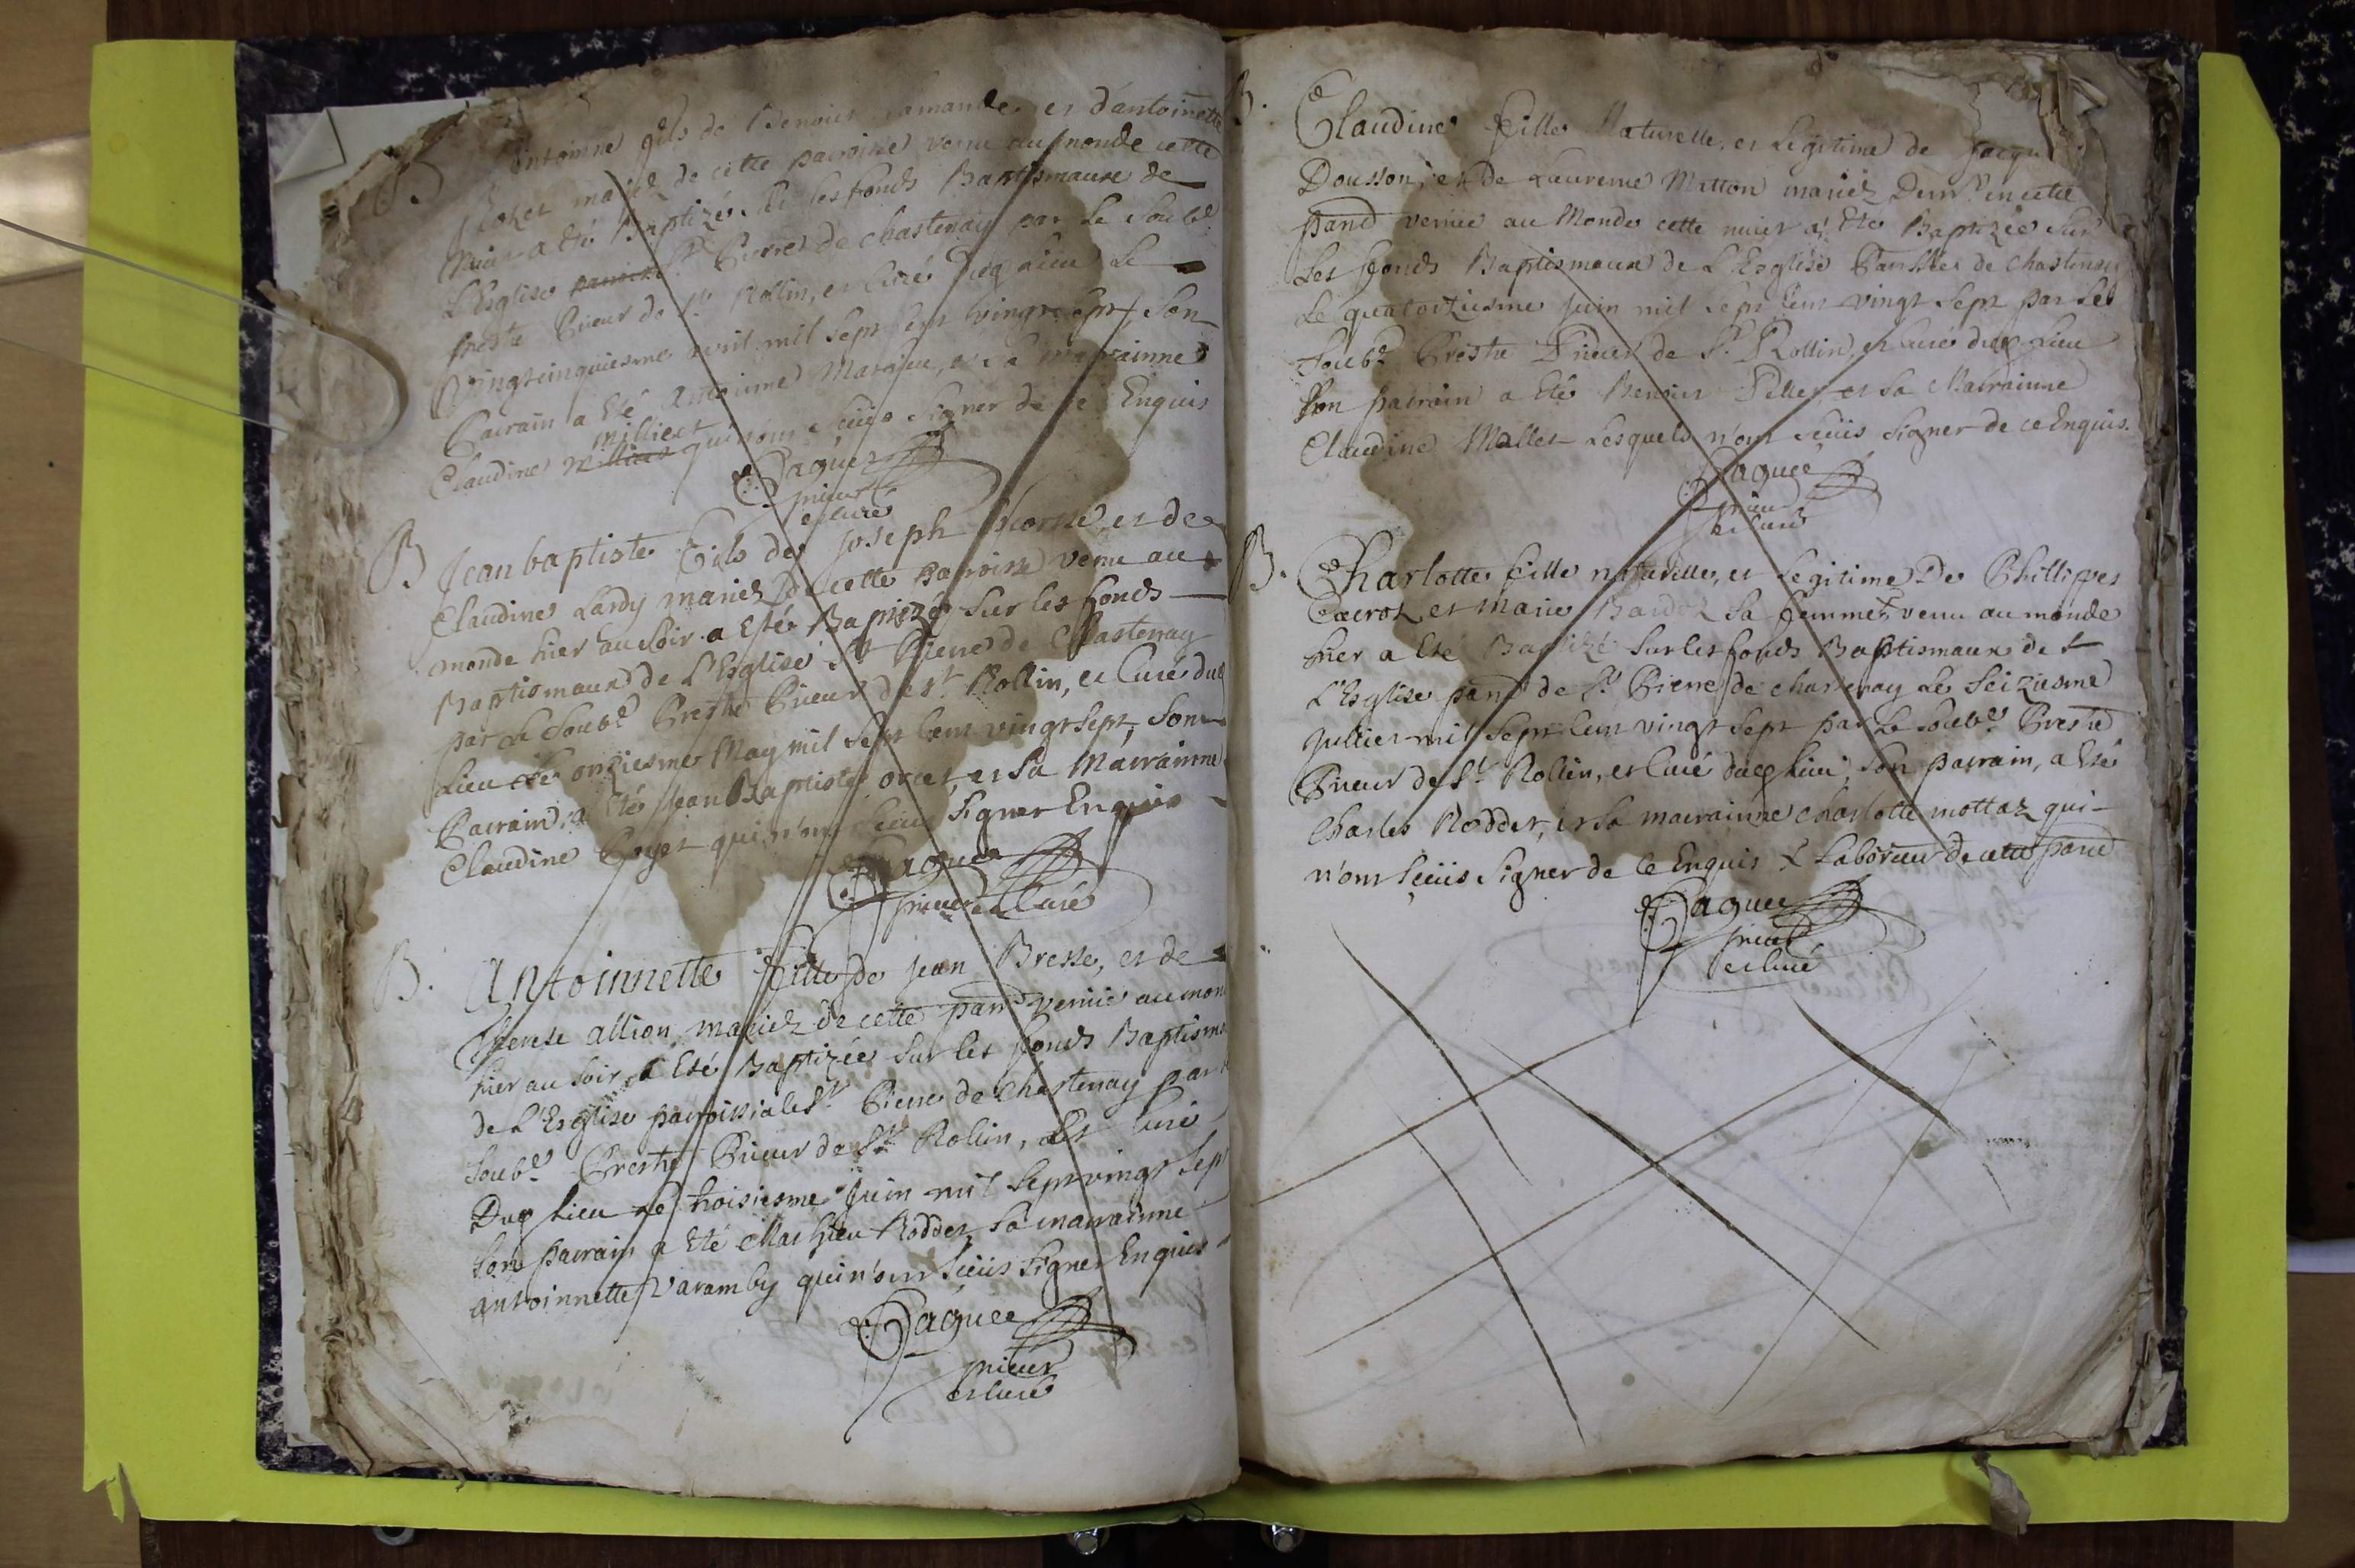 B Antoinne fils de Benoist amande et d'antoinette
mariez de cette paroisse venu au monde cette
nuit a été Baptizé sur les fonds Baptismaux de
L'Esglise St Pierre de chastenay par Le Soubné
preste Prieur de St Rollin, et Curé dudq Lieu Le
Vingtcinquiesme avril mil sept cent vingt sept, Son
Parain a été Antoinne Mathieu, et Sa marainne
Claudine millieat qui n'ont sceüs signer de ce Enquis
Paquée
prieur
et curé
B Jean baptiste Fils de Joseph et de
Claudine Lardy mariez de cette paroisse venu au
monde hier au Soir a Eté Baptizé Sur les fonds
Baptismaux de L'Esglise St Pierre de Chastenay
par Le Soubné Prestre Prieur de St Rollin, et Curé dud
Lieu Le onziesme May mil Sept Cent vingt Sept, Son
Parain a Eté Jean Baptiste et Sa Marainne
Claudine Goyet qui n'ont Sceus Signer Enquis
Paquée
prieur et Curé
B. Antoinnette Fille de Jean Bresse, et de
Therese allion mariez de cette parsd venüe au mon
hier au Soir a Eté Baptizée Sur les fonds Baptisma
de L'Esglise parroissiale St Pierre de Chastenay par
Soubné Prestre Prieur de St Rollin, et Curé
Dudq Lieu Le troisiesme Juin mil Sept vingt Sept
Son parrain a Eté Mathieu Rodder, Sa marrainne
antoinnette Varamby qui n'ont Sceüs Signer Enquis
Paquée
prieur
et curé
B. Claudine Fille Naturelle, et Legitime de Jacque
Dousson, et de Laurence Mitton mariez Demt en cette
parsd venüe au Monde cette nuict a Eté Baptizée Sur
Les fonds Baptismaux de L'Esglise Parslle de chastenay
Le quatorziesme Juin mil Sept Cent vingt Sept par Le
Soubné Prestre Prieur de St Rollin, et Curé dudq Lieu
Son parrain a Eté Benoist Pelle et Sa Marrainne
Claudine Mallet Lesquels n'ont sceüs Signer de ce Enquis.
Paquée
prieur
et curé
B. Charlotte fille naturelle, et Legitime De Phillippes
et Marie Bardoz Sa femme venu au monde
hier a Eté Baptizé Sur les fonds Baptismaux de
L'Esglise parsd de St Pierre de chastenay Le Seiziesme
Juillier mil Sept Cent vingt Sept par Le Soubné Prestre
Prieur de St Rollin, et Curé dudq Lieu, Son parrain, a Eté
Charles Rodder, et Sa marrainne Charlotte mottaz qui
n'ont Sceüis Signer de Ce Enquis Laboureur de cette parsd
Paquée
prieur
et Curé